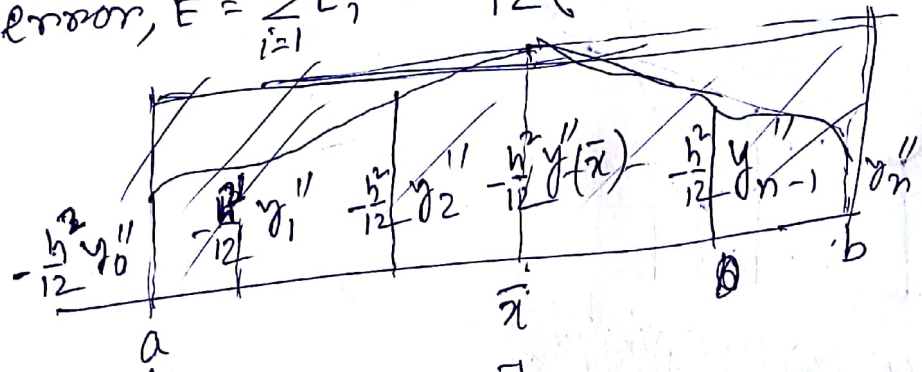 error, E = Σ_{i=1} E_i
-h²/12 y₀''
-h²/12 y₁''
-h²/12 y₂''
-h²/12 y''(x̄)
-h²/12 y''ₙ₋₁
yₙ''
a
x̄
b